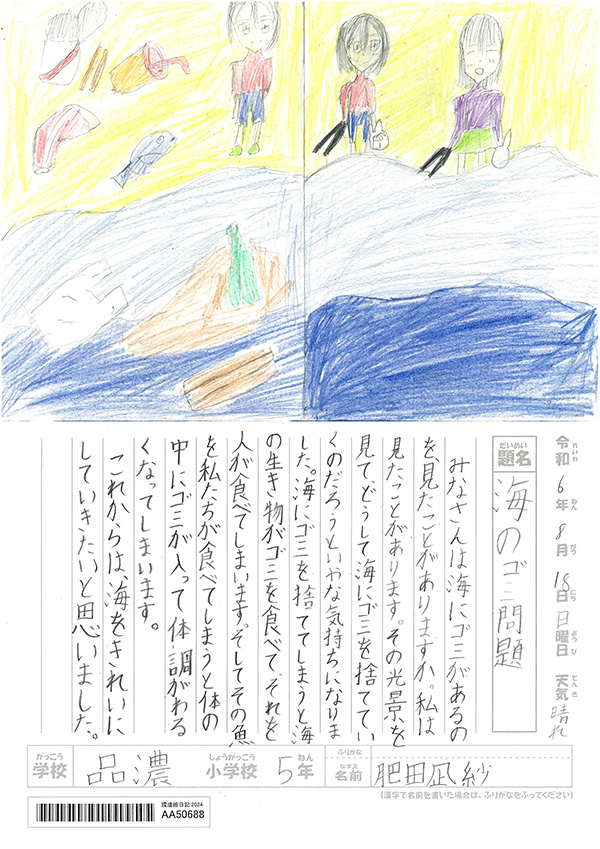 令和6年8月18日日曜日 天気晴れ
れいわ ねん がつ にち ようび てんき
だいめい
題名 海のゴミ問題
みなさんは海にゴミがあるの
を、見たことがありますか。私は
見たことがあります。その光景を
見て、どうして海にゴミを捨ててい
くのだろうといやな気持ちになりま
した。海にゴミを捨ててしまうと海
の生き物がゴミを食べて、それを
人が食べてしまいます。そしてその魚
を私たちが食べてしまうと体の
中にゴミが入って体調がわる
くなってしまいます。
これからは、海をきれいに
していきたいと思いました。
がっこう しょうがっこう ねん ふりがな
学校 品濃 小学校 5年 名前 肥田凪紗
なまえ
(漢字で名前を書いた場合は、ふりがなをふってください)
環境絵日記2024
AA50688